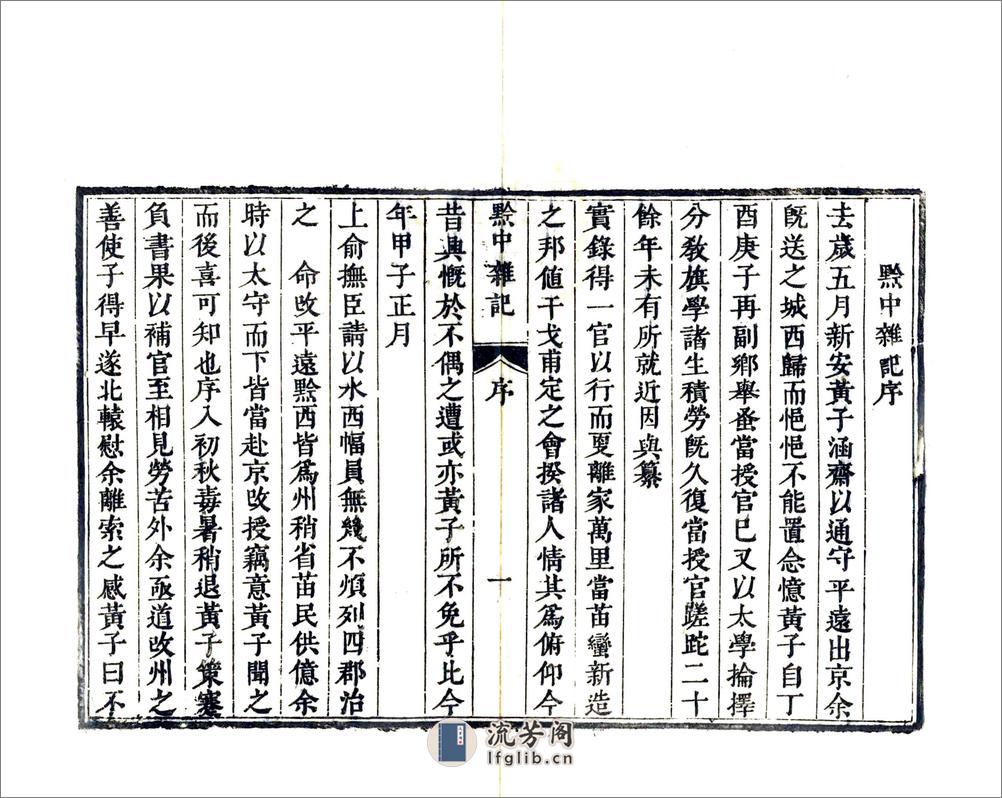 黔中雜記序
去歲五月新安黃子涵齋以通守平遠出京余
旣送之城西歸而悒悒不能置念憶黃子自丁
酉庚子再副鄉舉蚤當授官已又以太學掄擇
分敎旗學諸生積勞旣久復當授官蹉跎二十
餘年未有所就近因與纂
實錄得一官以行而夏離家萬里當苗蠻新造
之邦值干戈甫定之會揆諸人情其爲俯仰今
黔中雜記 序 一
昔興慨於不偶之遭或亦黃子所不免乎比今
年甲子正月
上俞撫臣請以水西幅員無幾不煩列四郡治
之 命改平遠黔西皆爲州稍省苗民供億余
時以太守而下皆當赴京改授竊意黃子聞之
而後喜可知也序入初秋毒暑稍退黃子策蹇
負書果以補官至相見勞苦外余亟道改州之
善使子得早遂北轅慰余離索之感黃子曰不
流芳阁
lfglib.cn